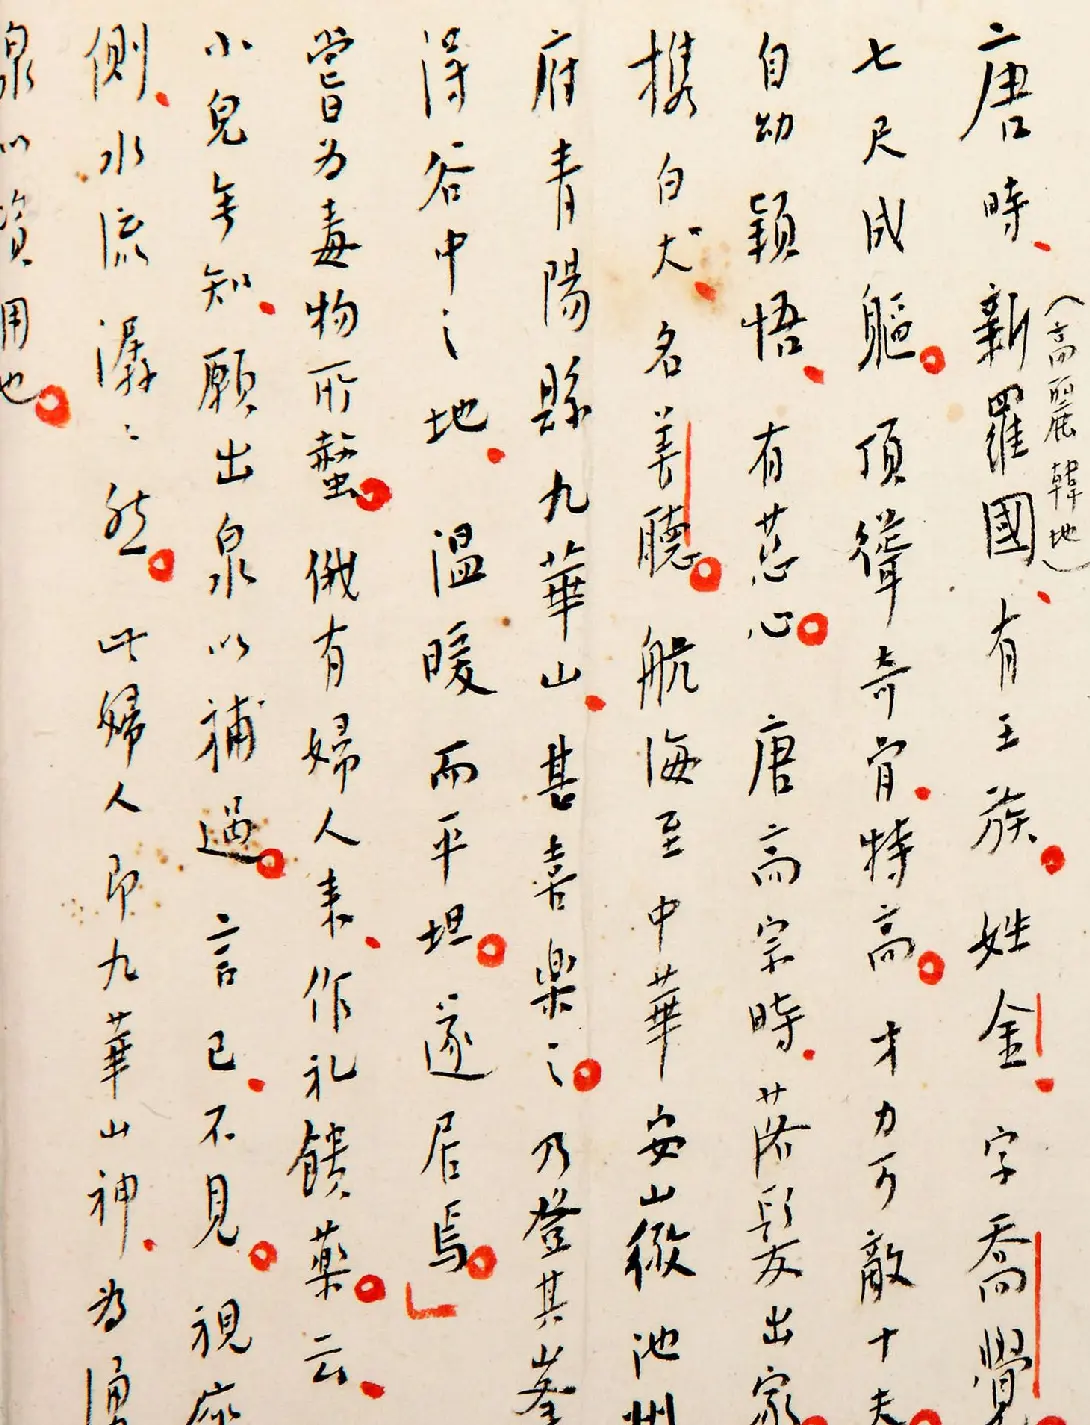 唐時新羅國有王族姓金字喬覺
(高麗韓地)
七尺成軀頂聳奇骨特高才力可敵十夫
自幼穎悟有慈心唐高宗時落髮出家
携白犬名善聽航海至中華安山徽池州
府青陽縣九華山甚喜樂之乃登其峯
得谷中之地溫暖而平坦遂居焉
嘗為毒物所螫俄有婦人来作礼饋薬云
小兒無知願出泉以補過言已不見視座
側水流潺〻然此婦人即九華山神為湧
泉以資用也